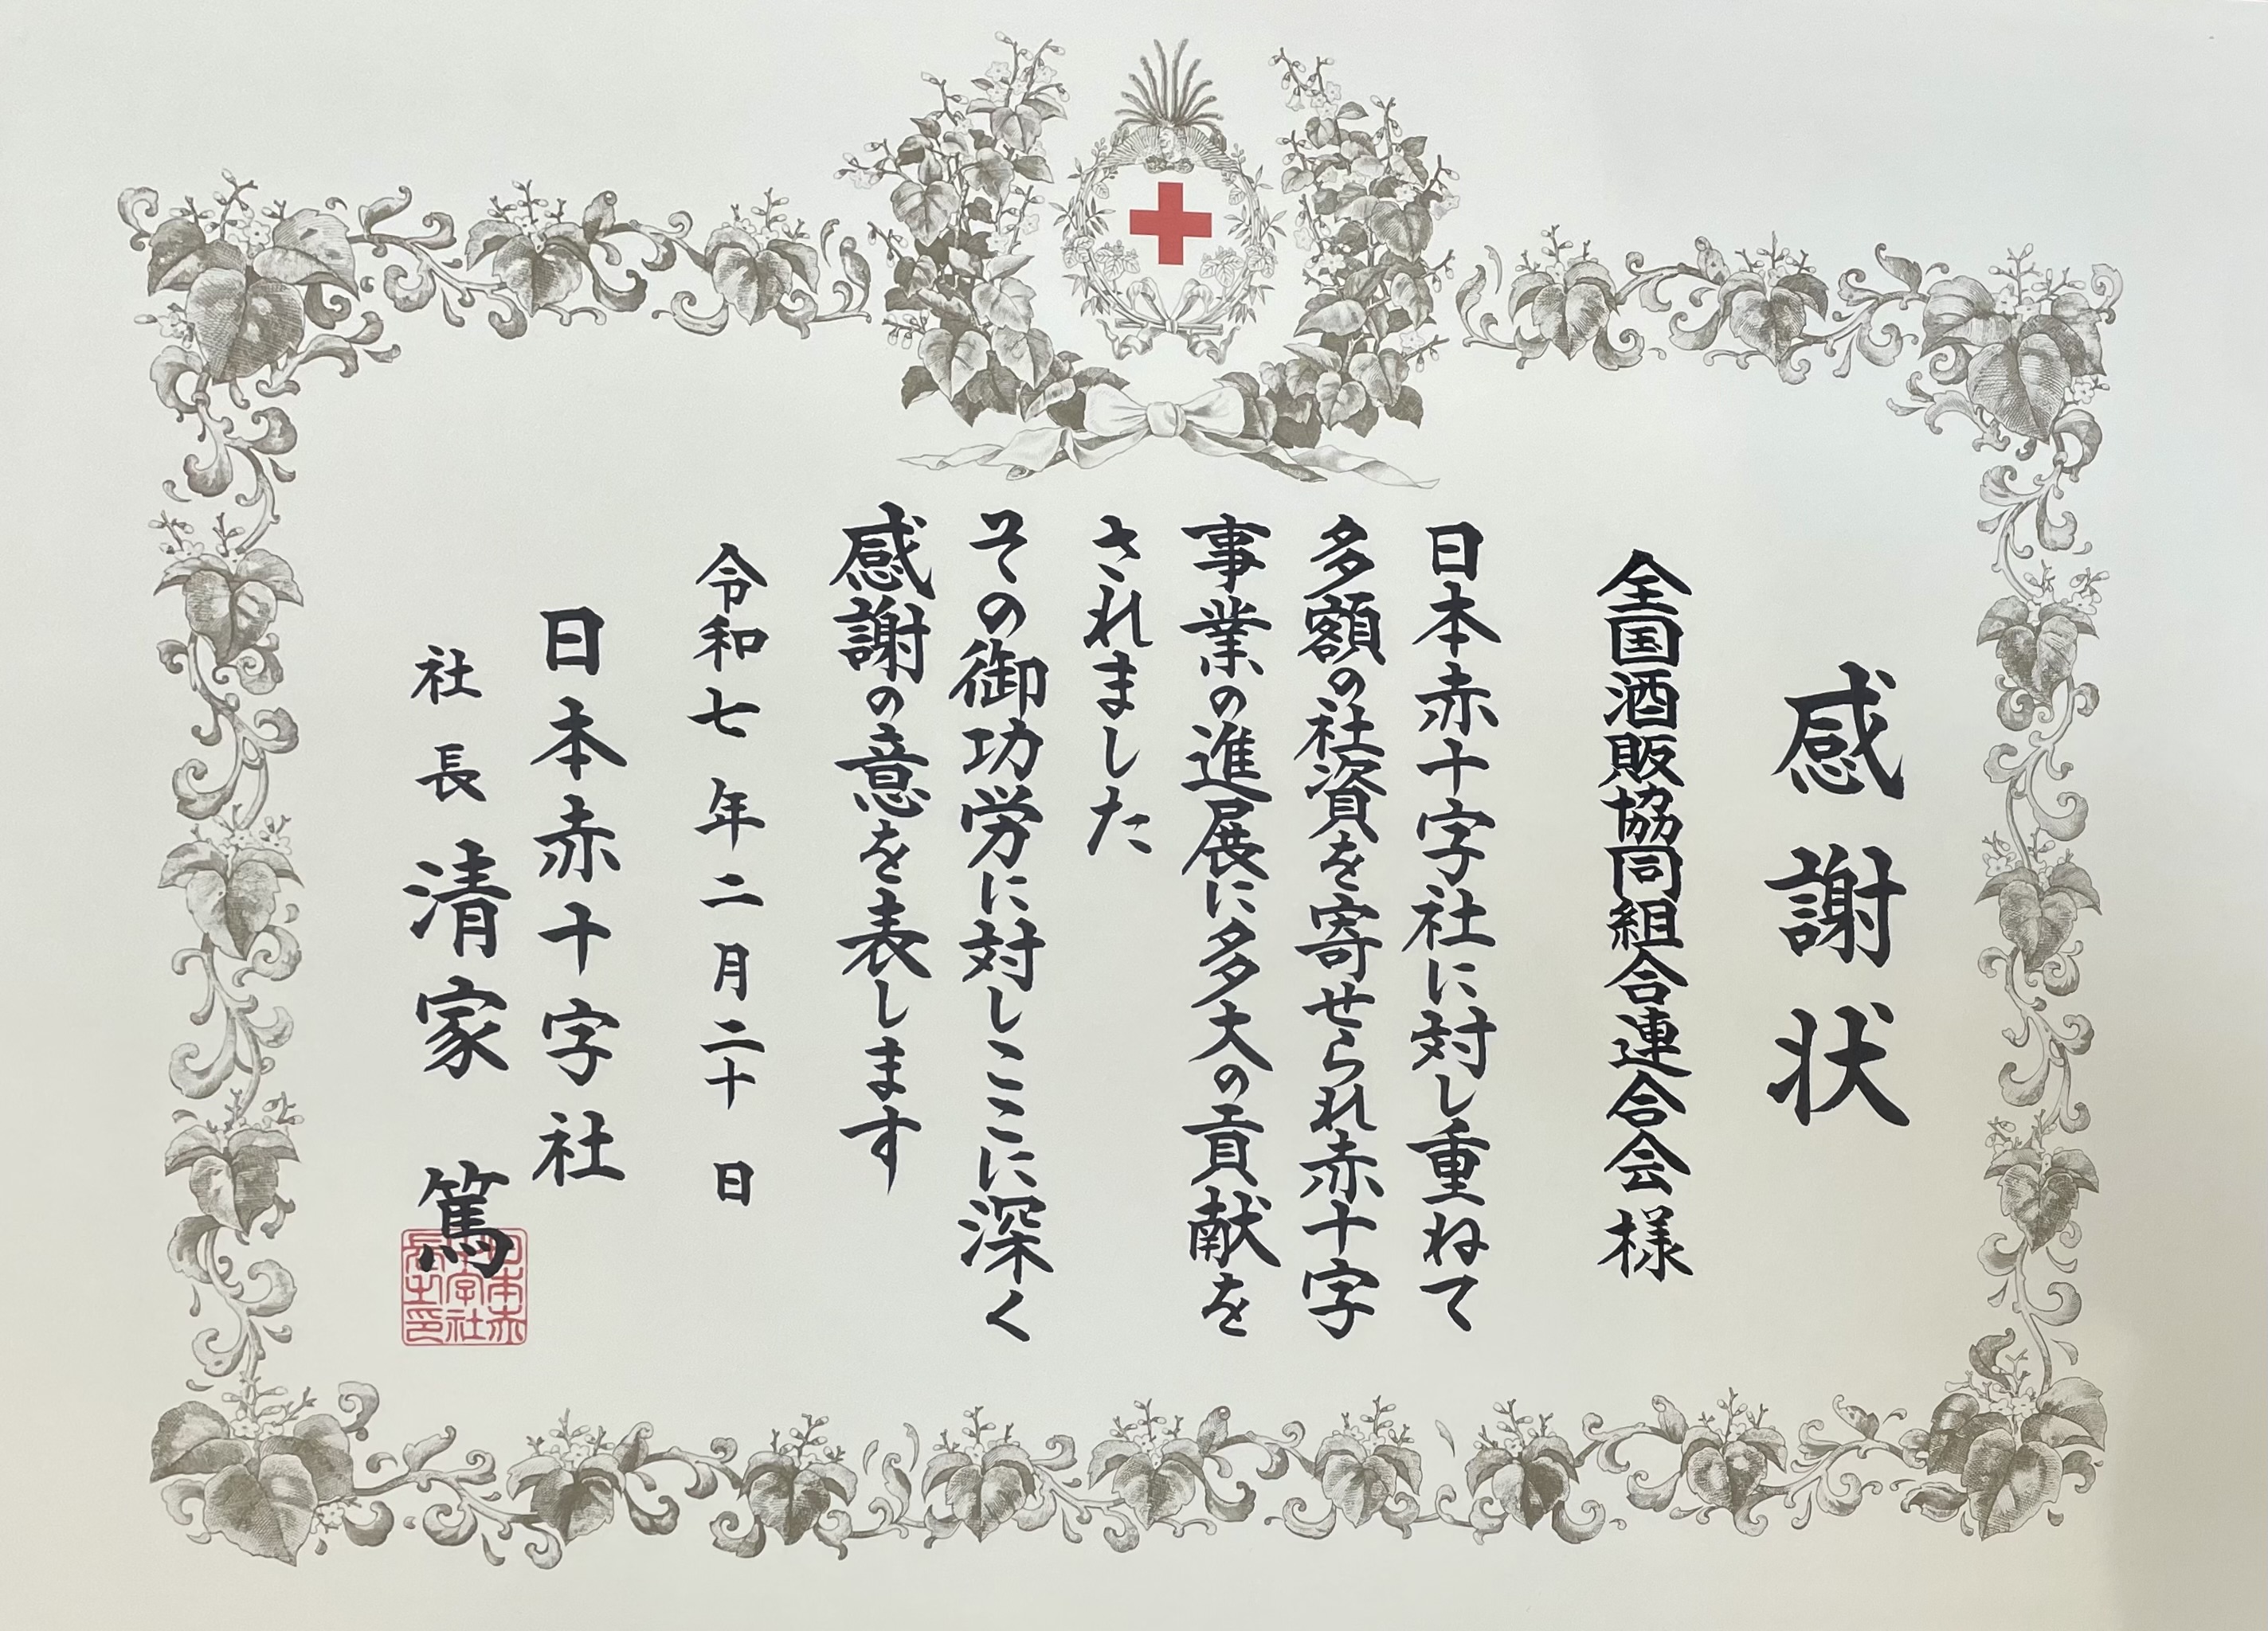 感謝状
全国酒販協同組合連合会様
日本赤十字社に対し重ねて
多額の社資を寄せられ赤十字
事業の進展に多大の貢献を
されました
その御功労に対しここに深く
感謝の意を表します
令和七年二月二十日
日本赤十字社
社長 清家 篤